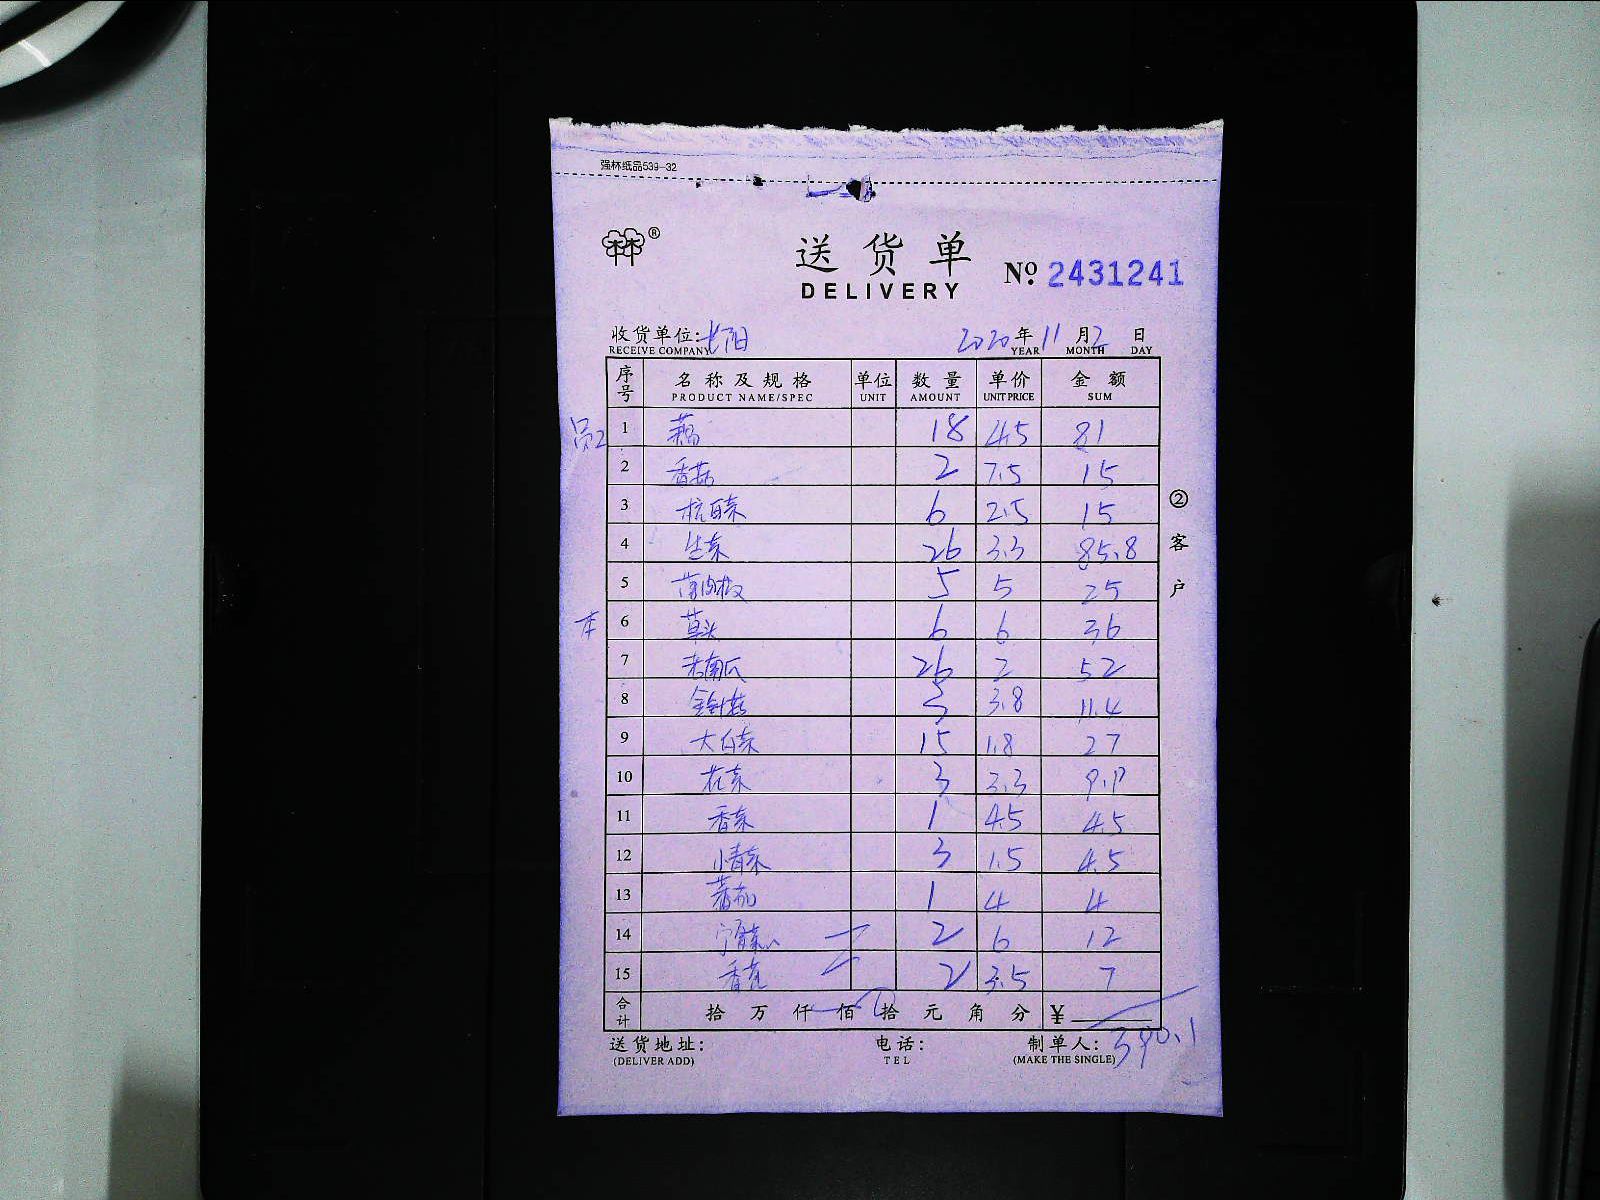 强林纸品539-32
送货单
DELIVERY
№ 2431241
收货单位: 七阳 2020年11月2日
RECEIVE COMPANY YEAR MONTH DAY
序号 名称及规格 单位 数量 单价 金额
PRODUCT NAME/SPEC UNIT AMOUNT UNIT PRICE SUM
员工 1 藕 18 4.5 81
2 香菇 2 7.5 15
3 杭白菜 6 2.5 15
4 生菜 26 3.3 85.8
5 薄肉椒 5 5 25
6 草头 6 6 36
7 老南瓜 26 2 52
8 金针菇 3 3.8 11.4
9 大白菜 15 1.8 27
10 花菜 3 3.3 9.9
11 香菜 1 4.5 4.5
12 小青菜 3 1.5 4.5
13 蕃茄 1 4 4
14 2 6 12
15 香芹 2 3.5 7
合计 拾 万 仟 佰 拾 元 角 分 ¥ 390.1
送货地址: 电话: 制单人:
(DELIVER ADD) TEL (MAKE THE SINGLE)
②客户